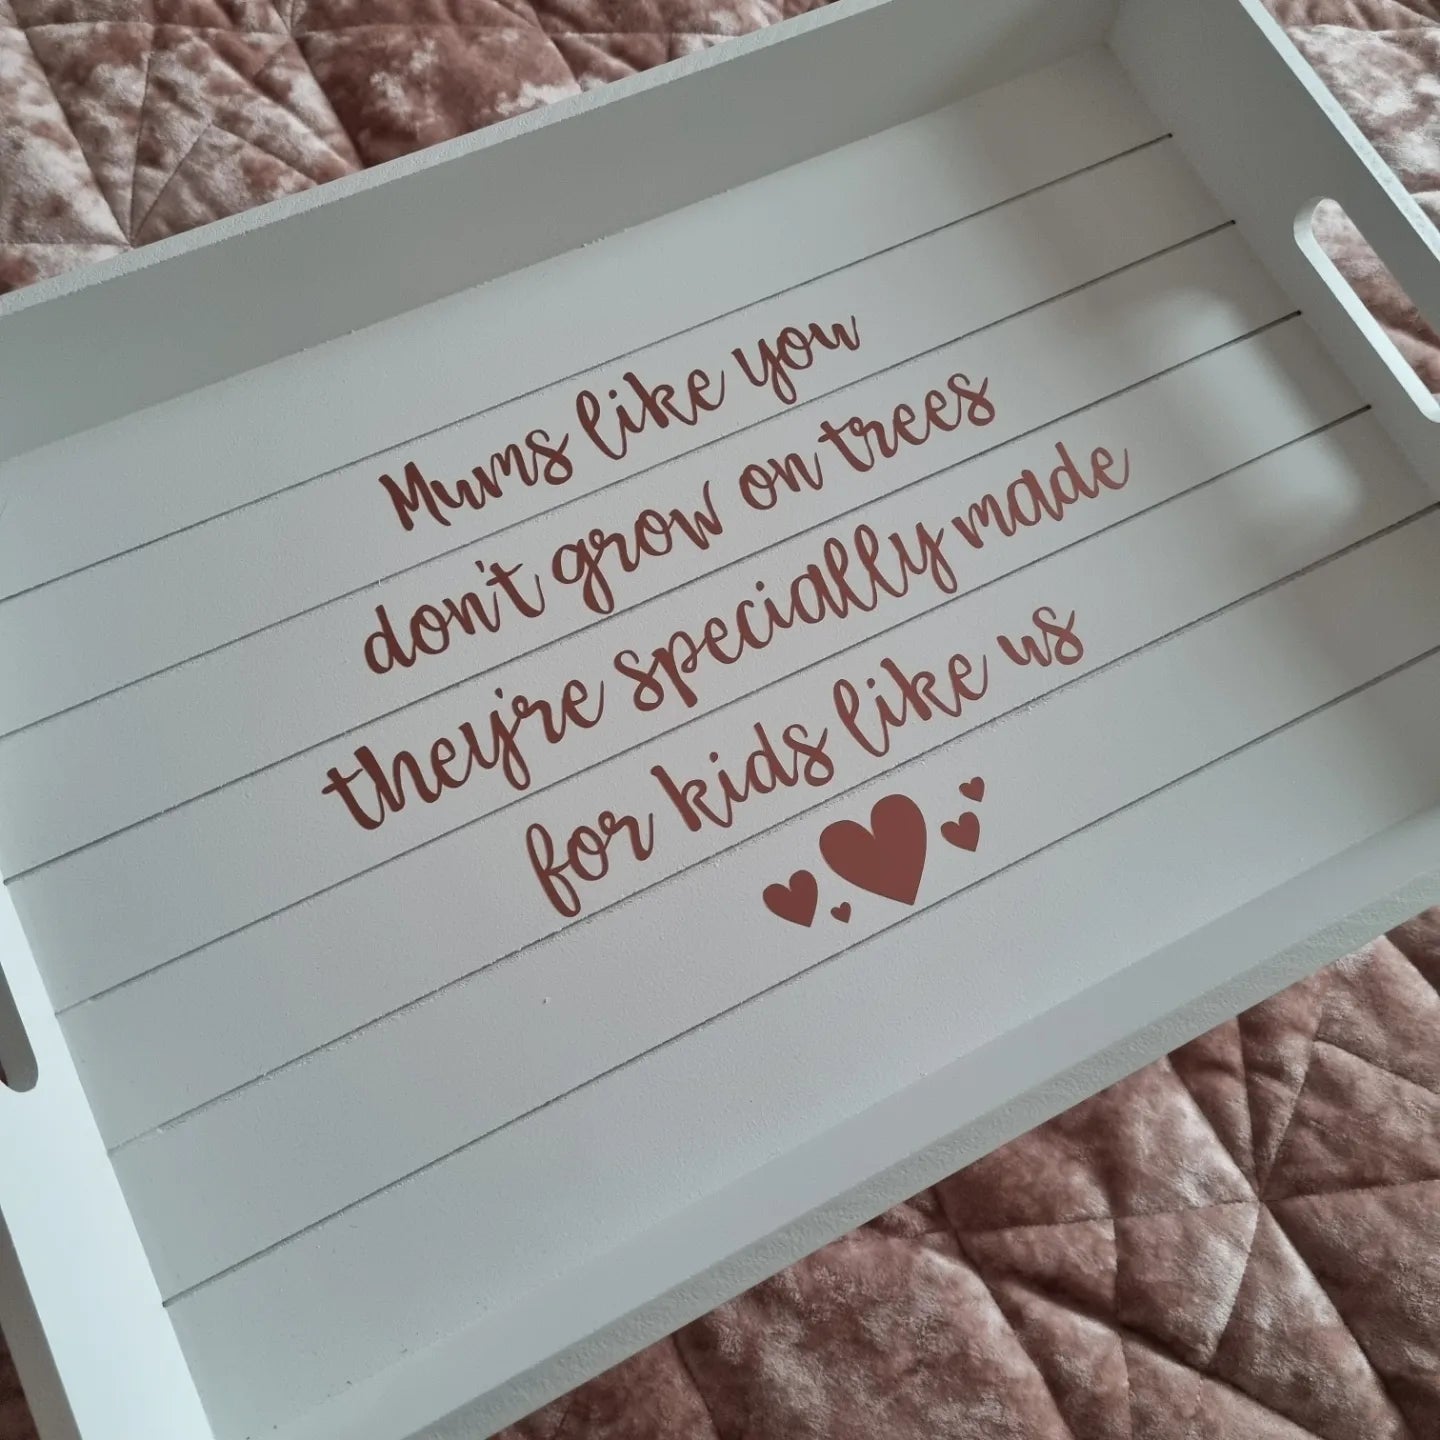 Mums like you
don't grow on trees
they're specially made
for kids like us